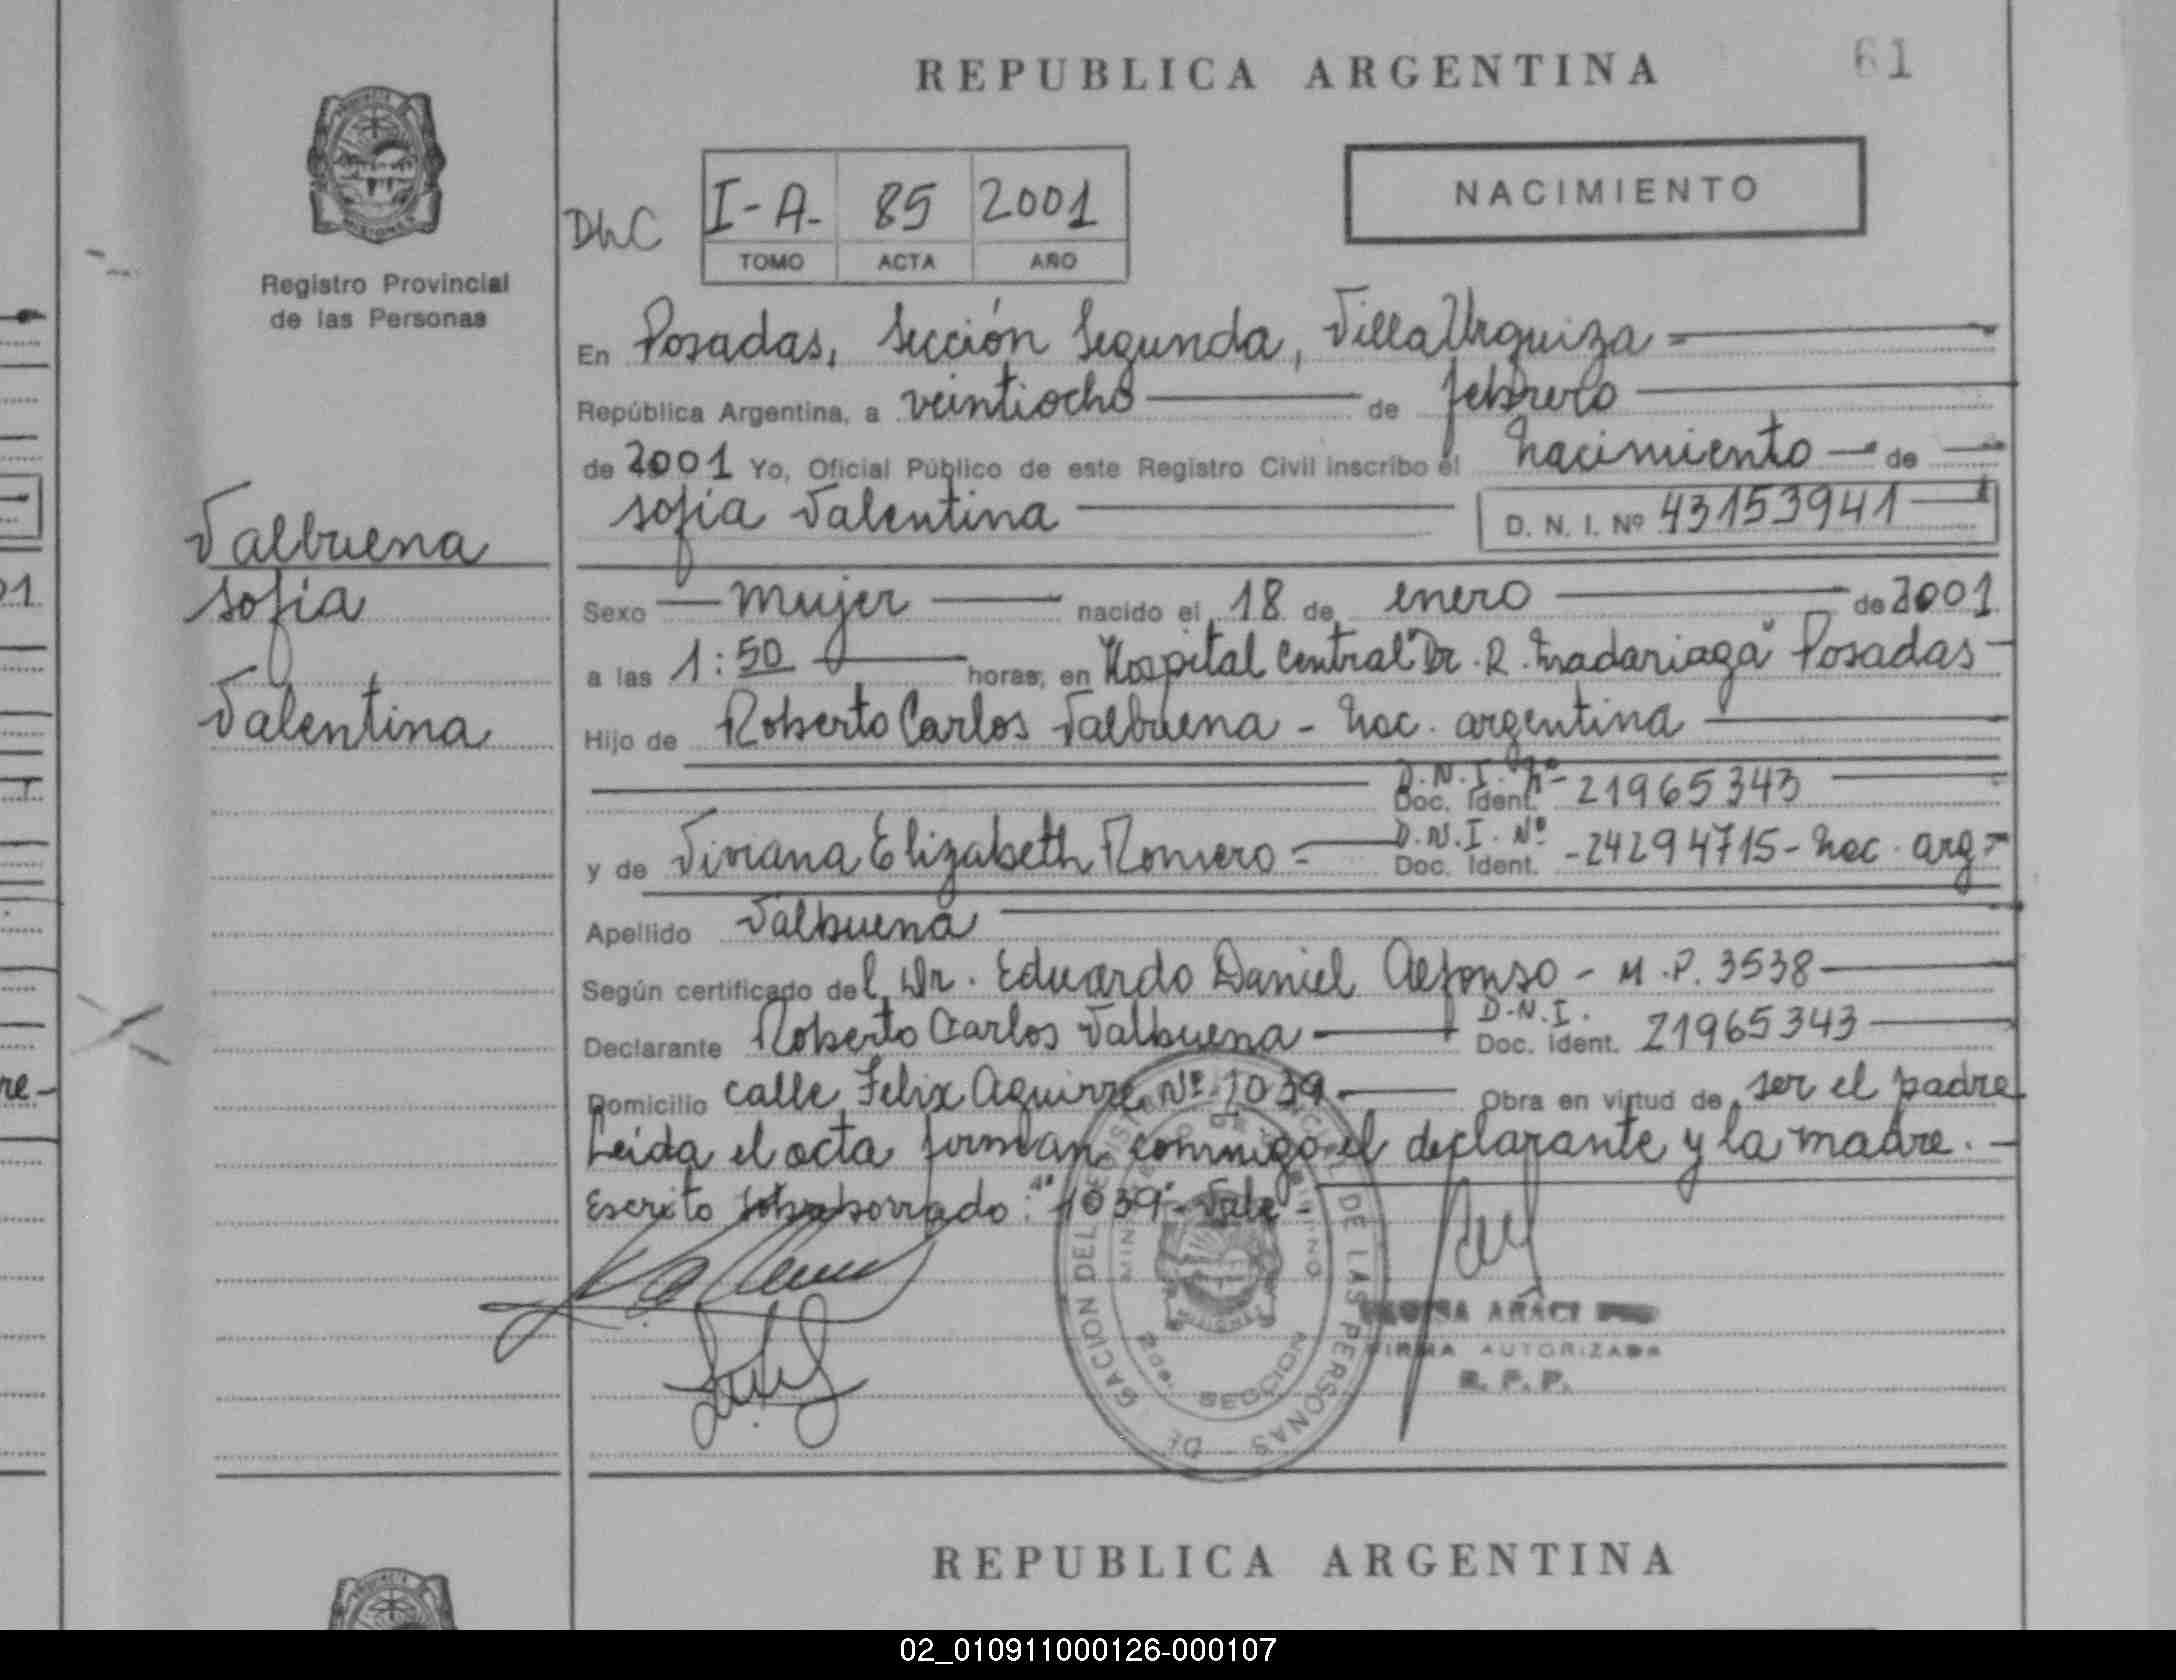 REPUBLICA ARGENTINA
61
Registro Provincial
de las Personas
DhC
I-A- 85 2001
TOMO ACTA AÑO
NACIMIENTO
En Posadas, Sección Segunda, Villa Urquiza
República Argentina, a veintiocho de febrero
de 2001 Yo, Oficial Público de este Registro Civil inscribo el Nacimiento de
Sofía Valentina
D. N. I. Nº 43153941
Valbuena
Sofía
Valentina
Sexo Mujer nacido el 18 de enero de 2001
a las 1:50 horas, en Hospital Central "Dr. R. Madariaga" Posadas
Hijo de Roberto Carlos Valbuena - Nac. argentina
D.N.I. Nº
Doc. Ident. - 21965343
y de Viviana Elizabeth Romero - D.N.I. Nº
Doc. Ident. - 24294715 - Nac. arg-
Apellido Valbuena
Según certificado del Dr. Eduardo Daniel Alfonso - M.P. 3538
Declarante Roberto Carlos Valbuena D.N.I.
Doc. ident. 21965343
Domicilio calle Felix Aguirre Nº 1039 Obra en virtud de ser el padre
Leída el acta firman conmigo el declarante y la madre.
Escrito sobreborrado: "1039" Vale-
DE LAS PERSONAS
SECCION
ARACI
FIRMA AUTORIZADA
R. P. P.
REPUBLICA ARGENTINA
02_010911000126-000107